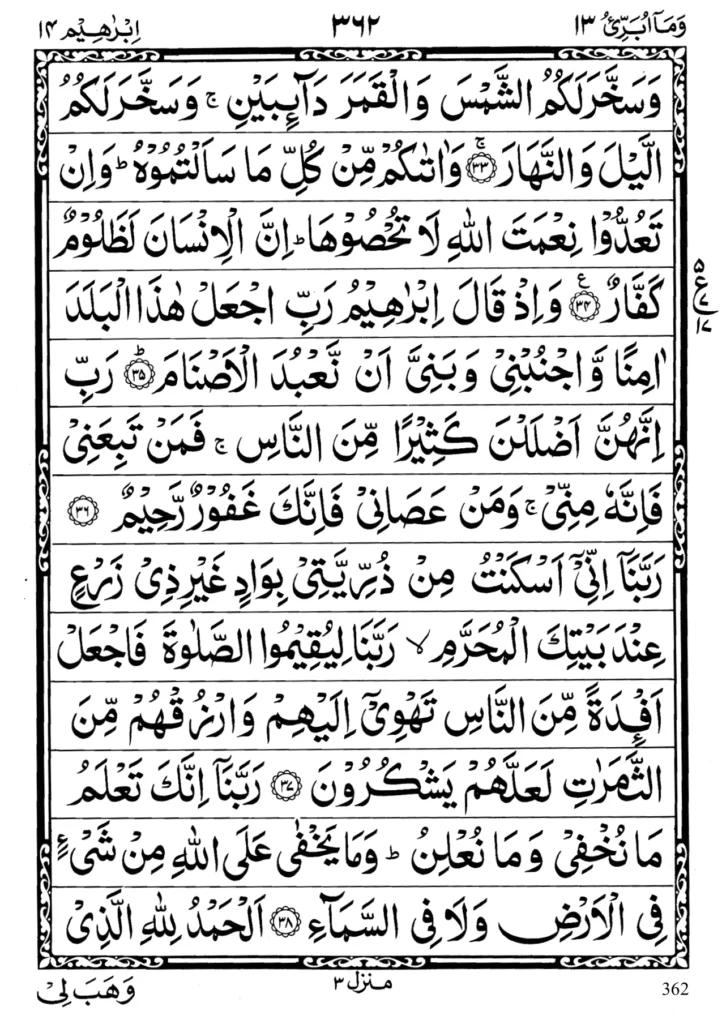 وَمَآ اُبَرِّئُ ١٣ ٣٦٢ اِبْرٰهِيْم ١٤
وَسَخَّرَ لَكُمُ الشَّمْسَ وَالْقَمَرَ دَآئِبَيْنِ ۚ وَسَخَّرَ لَكُمُ
الَّيْلَ وَالنَّهَارَ ۚ ﴿٣٣﴾ وَاٰتٰكُمْ مِّنْ كُلِّ مَا سَاَلْتُمُوْهُ ؕ وَاِنْ
تَعُدُّوْا نِعْمَتَ اللّٰهِ لَا تُحْصُوْهَا ؕ اِنَّ الْاِنْسَانَ لَظَلُوْمٌ
كَفَّارٌ ﴿٣٤﴾ ع وَاِذْ قَالَ اِبْرٰهِيْمُ رَبِّ اجْعَلْ هٰذَا الْبَلَدَ
٥ ع ٧ ١٧
اٰمِنًا وَّاجْنُبْنِيْ وَبَنِيَّ اَنْ نَّعْبُدَ الْاَصْنَامَ ؕ ﴿٣٥﴾ رَبِّ
اِنَّهُنَّ اَضْلَلْنَ كَثِيْرًا مِّنَ النَّاسِ ۚ فَمَنْ تَبِعَنِيْ
فَاِنَّهٗ مِنِّيْ ۚ وَمَنْ عَصَانِيْ فَاِنَّكَ غَفُوْرٌ رَّحِيْمٌ ﴿٣٦﴾
رَبَّنَآ اِنِّيْٓ اَسْكَنْتُ مِنْ ذُرِّيَّتِيْ بِوَادٍ غَيْرِ ذِيْ زَرْعٍ
عِنْدَ بَيْتِكَ الْمُحَرَّمِ ۙ رَبَّنَا لِيُقِيْمُوا الصَّلٰوةَ فَاجْعَلْ
اَفْئِدَةً مِّنَ النَّاسِ تَهْوِيْٓ اِلَيْهِمْ وَارْزُقْهُمْ مِّنَ
الثَّمَرٰتِ لَعَلَّهُمْ يَشْكُرُوْنَ ﴿٣٧﴾ رَبَّنَآ اِنَّكَ تَعْلَمُ
مَا نُخْفِيْ وَمَا نُعْلِنُ ؕ وَمَا يَخْفٰى عَلَى اللّٰهِ مِنْ شَيْءٍ
فِي الْاَرْضِ وَلَا فِي السَّمَآءِ ﴿٣٨﴾ اَلْحَمْدُ لِلّٰهِ الَّذِيْ
362 منزل ٣ وَهَبَ لِيْ